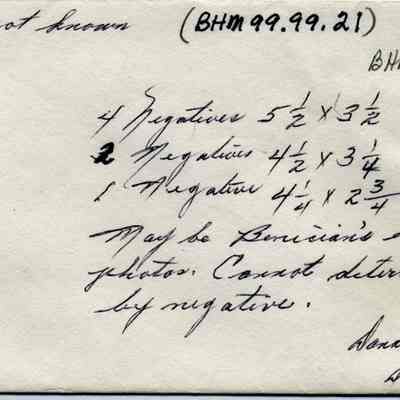 not known (BHM 99.99.21)
BHM
4 Negatives 5 1/2 x 3 1/2
2 Negatives 4 1/2 x 3 1/4
1 Negative 4 1/4 x 2 3/4
May be Benician's
photos. Cannot deter
by negative.